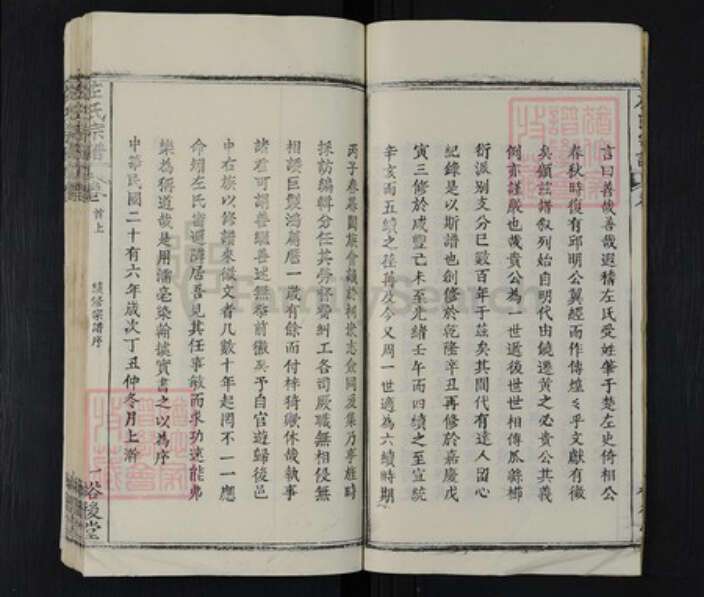 言曰善哉善哉遐稽左氏受姓肇于楚左史倚相公
春秋時復有邱明公翼經而作傳煌々乎文獻有徵
矣顧茲譜敘列始自明代由饒遷黄之必貴公其義
例亦謹嚴也哉貴公為一世遞後世世相傳瓜緜椰
衍派别支分已數百年于茲矣其間代有達人留心
紀錄是以斯譜也創修於乾隆辛丑再修於嘉慶戊
寅三修於咸豐己未至光緒壬午而四續之至宣統
辛亥而五續之孫再及今又周一世適為六續時期
丙子春
族會議
念同
集乃事
時
採訪編輯分任其勞督費糾工各司厥職無相侵無
相諉巨製鴻篇厯一歲有餘而付梓猗歟休哉執事
諸君可謂善繼善述無
前徽矣予自官遊歸後邑
中右族以修譜來徵文者几數十年起罔不一一應
命翊左氏
迴隣居吾見其任事敏而求功速能弗
樂為稱道哉是用濡毫染翰摭實書之以為序
中華民國二十有六年歲次丁丑仲冬月上澣
左氏宗譜
卷
首上
續修宗譜序
一
裕後堂
FamilySearch